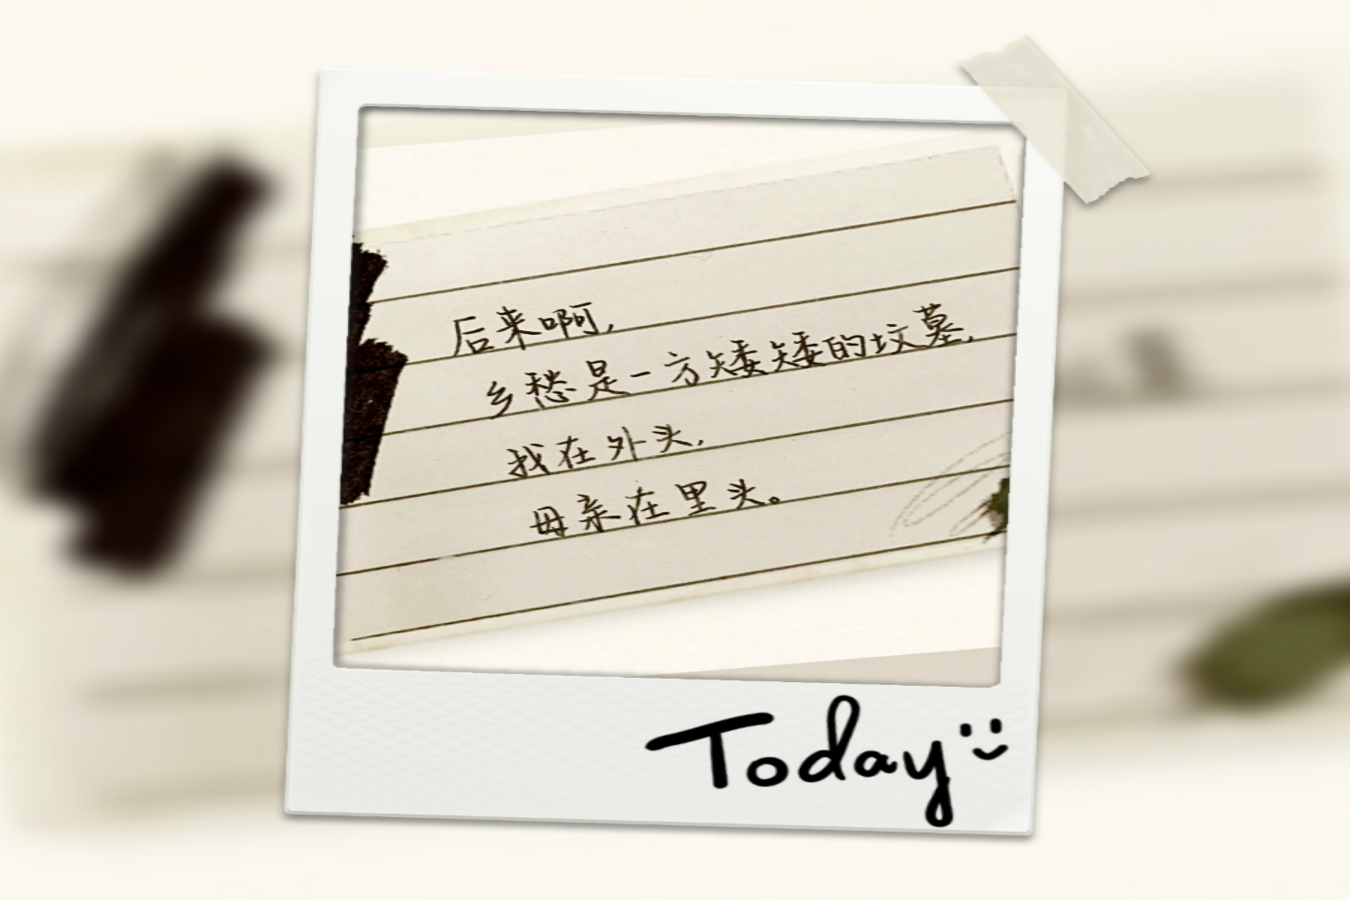 后来啊,
乡愁是一方矮矮的坟墓,
我在外头,
母亲在里头。
Today